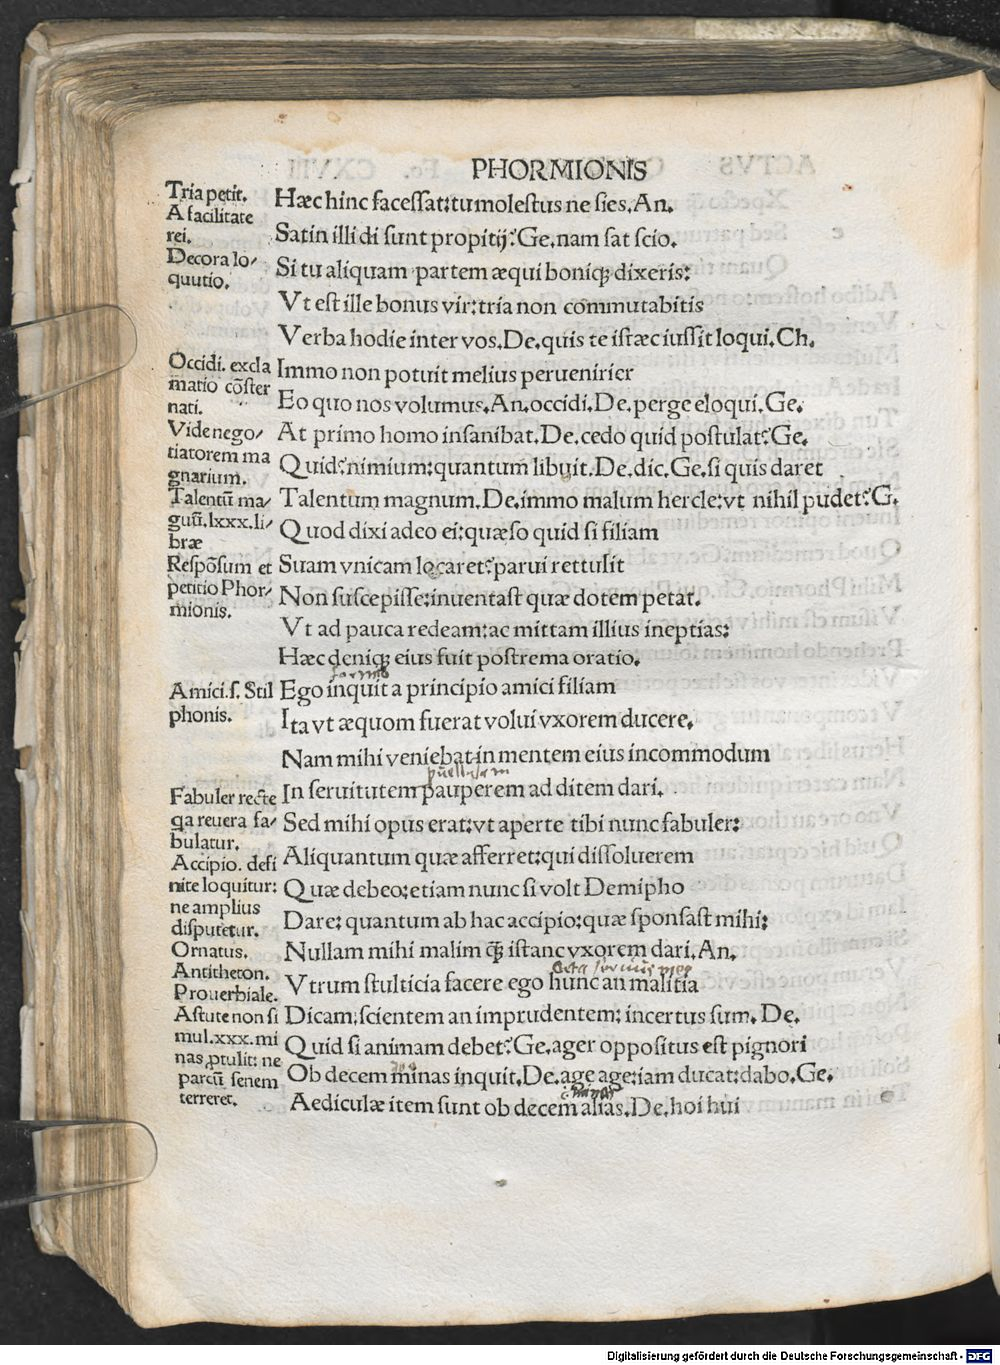 PHORMIONIS
Tria petit.
A facilitate
rei.
Decora lo/
quutio.
Occidi. excla
matio cōster
nati.
Vide nego/
tiatorem ma
gnarium.
Talentū ma/
guū.lxxx.li/
bræ
Respōsum et
petitio Phor/
mionis.
Amici.ſ. Stil
phonis.
Fabuler recte
qa reuera fa/
bulatur.
Accipio. defi
nite loquitur:
ne amplius
disputetur.
Ornatus.
Antitheton.
Prouerbiale.
Astute non si
mul.xxx.mi
nas ptulit: ne
parcū senem
terreret.
Hæc hinc faceſſat: tu moleſtus ne ſies. An.
Satin illi di ſunt propitij? Ge. nam ſat ſcio.
Si tu aliquam partem æqui boniq; dixeris:
Vt eſt ille bonus vir: tria non cōmutabitis
Verba hodie inter vos. De. quis te iſtæc iuſſit loqui. Ch.
Immo non potuit melius peruenirier
Eo quo nos volumus. An. occidi. De. perge eloqui. Ge.
At primo homo inſanibat. De. cedo quid poſtulat? Ge.
Quid? nimium: quantum libuit. De. dic. Ge. ſi quis daret
Talentum magnum. De. immo malum hercle: vt nihil pudet? G.
Quod dixi adeo ei: quæſo quid ſi filiam
Suam vnicam locaret? parui rettulit
Non ſuſcepiſſe: inuentaſt quæ dotem petat.
Vt ad pauca redeam: ac mittam illius ineptias:
Hæc deniq; eius fuit poſtrema oratio.
Ego inquit a principio amici filiam
Ita vt æquom fuerat volui vxorem ducere.
Nam mihi veniebat in mentem eius incommodum
In ſeruitutem pauperem ad ditem dari.
Sed mihi opus erat: vt aperte tibi nunc fabuler:
Aliquantum quæ afferret: qui diſſoluerem
Quæ debeo: etiam nunc ſi volt Demipho
Dare: quantum ab hac accipio: quæ ſponſaſt mihi:
Nullam mihi malim q̄ iſtanc vxorem dari. An.
Vtrum ſtulticia facere ego hunc an malitia
Dicam: ſcientem an imprudentem: incertus ſum. De.
Quid ſi animam debet? Ge. ager oppoſitus eſt pignori
Ob decem minas inquit. De. age age: iam ducat: dabo. Ge.
Aediculæ item ſunt ob decem alias. De. hoi hui
Digitalisierung gefördert durch die Deutsche Forschungsgemeinschaft - DFG